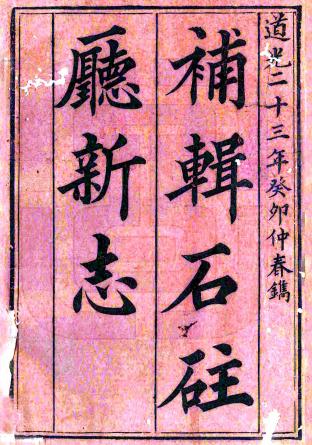 道光二十三年癸卯仲春鐫
補輯石砫
廳新志